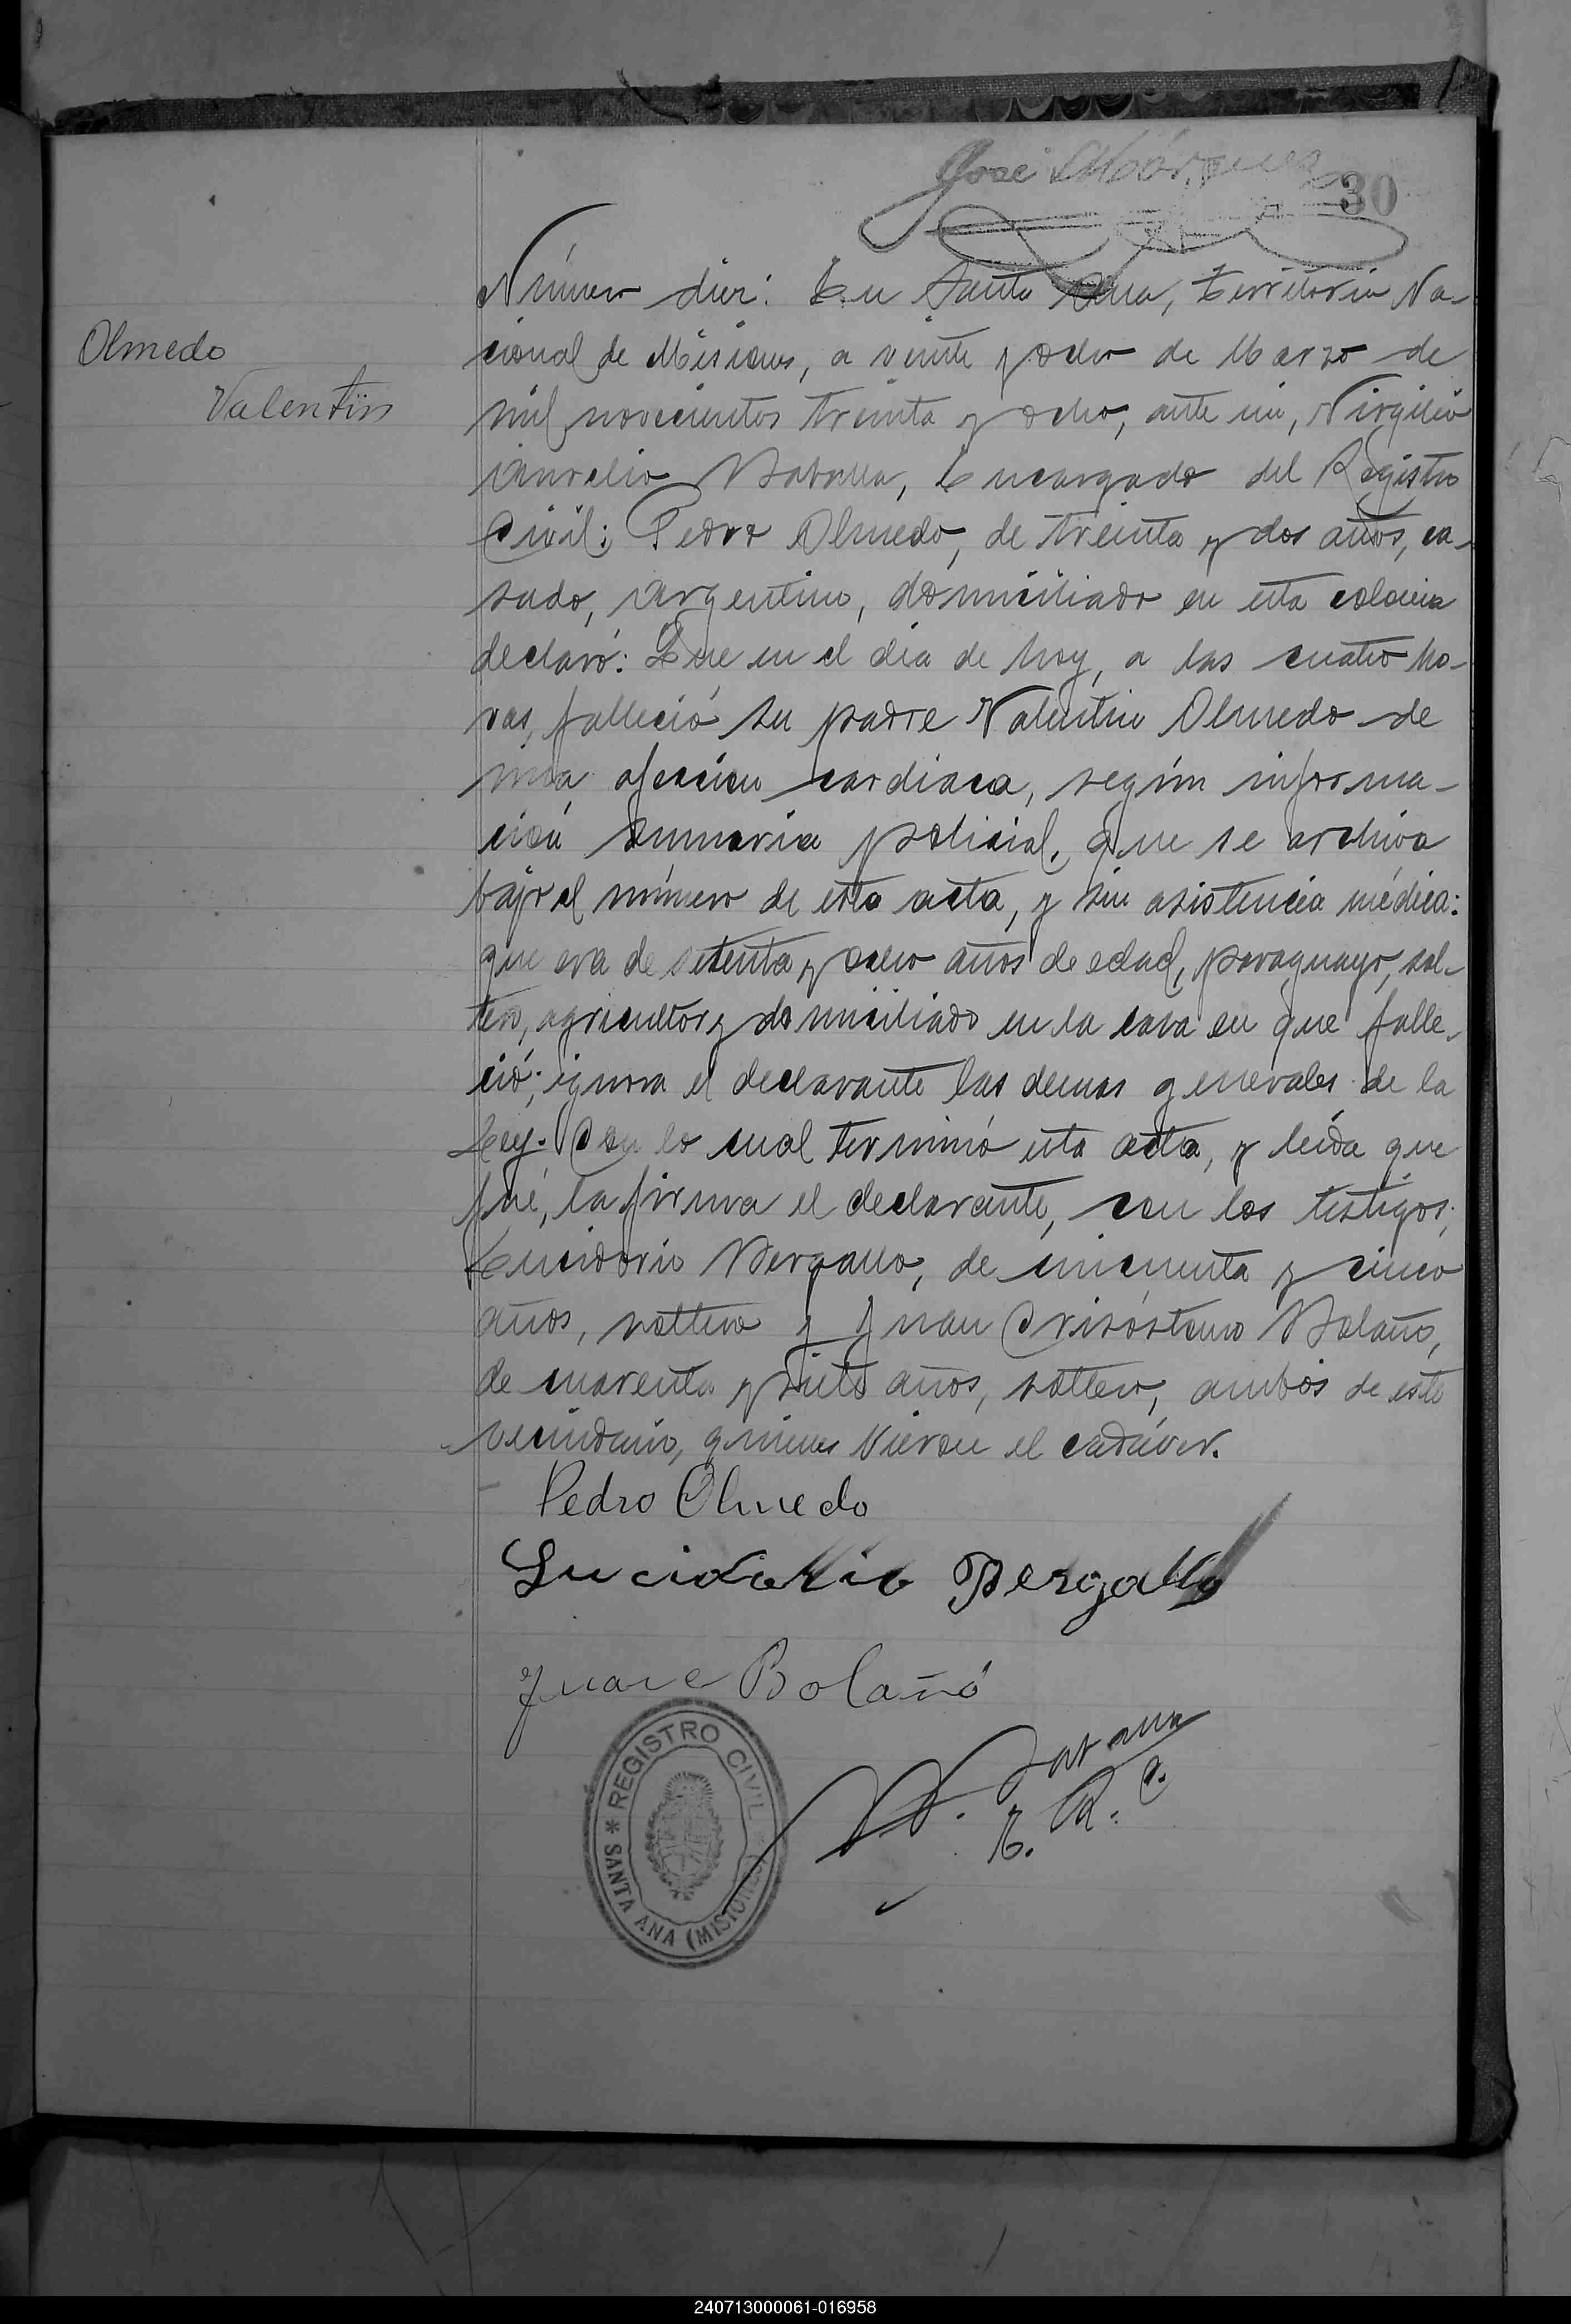 José Márquez
30
Olmedo
Valentín
Número diez: En Santa Ana, Territorio Na-
cional de Misiones, a veinte y ocho de Marzo de
mil novecientos treinta y ocho, ante mi, Virgilio
Aurelio, Encargado del Registro
Civil: Pedro Olmedo, de treinta y dos años, ca-
sado, argentino, domiciliado en esta colonia
declaró: Que en el día de hoy, a las cuatro ho-
ras, falleció su padre Valentin Olmedo de
una afección cardiaca, según informa-
ción sumaria policial, que se archiva
bajo el número de esta acta, y sin asistencia médica:
que era de setenta y ocho años de edad, paraguayo, sol-
tero, agricultor y domiciliado en la casa en que falle-
ció; ignora el declarante las demas generales de la
Ley. Con lo cual terminó esta acta, y leída que
fué, la firma el declarante, con los testigos;
Lucidorio Bergallo, de cincuenta y cinco
años, soltero y Juan Crisóstomo Bolaño,
de cuarenta y siete años, soltero, ambos de este
vecindario, quienes vieron el cadáver.
Pedro Olmedo
Lucidorio Bergallo
Juan Bolañó
V.
E. R. C.
* REGISTRO CIVIL *
SANTA ANA (MISIONES)
240713000061-016958